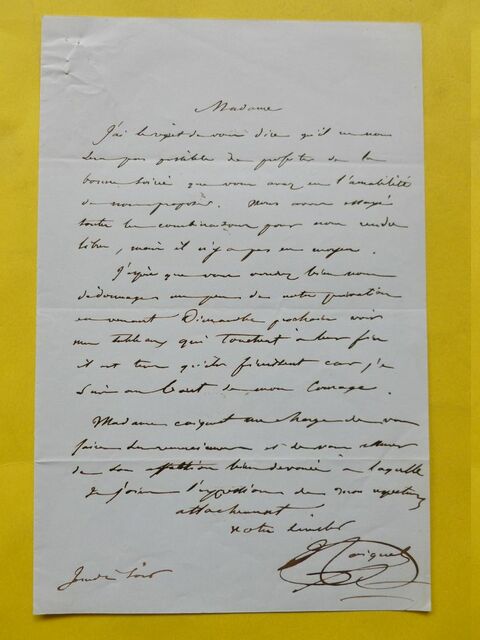 Madame
J'ai le regret de vous dire qu'il ne nous
sera pas possible de profiter de la
bonne soirée que vous avez eu l'amabilité
de nous proposer. Nous avons essayé
toutes les combinaisons pour nous rendre
libre, mais il n'y a pas eu moyen.
J'espère que vous voudrez bien nous
dédommager un peu de notre privation
en venant Dimanche prochain voir
mes tableaux qui touchent à leur fin
il est tems qu'ils finissent car je
suis au bout de mon courage.
Madame Coignet me charge de vous
faire ses remerciemens et de vous assurer
de son affection bien dévouée à laquelle
je joins l'expression de mon respectueux
attachement
votre
J Coignet
Jeudi soir